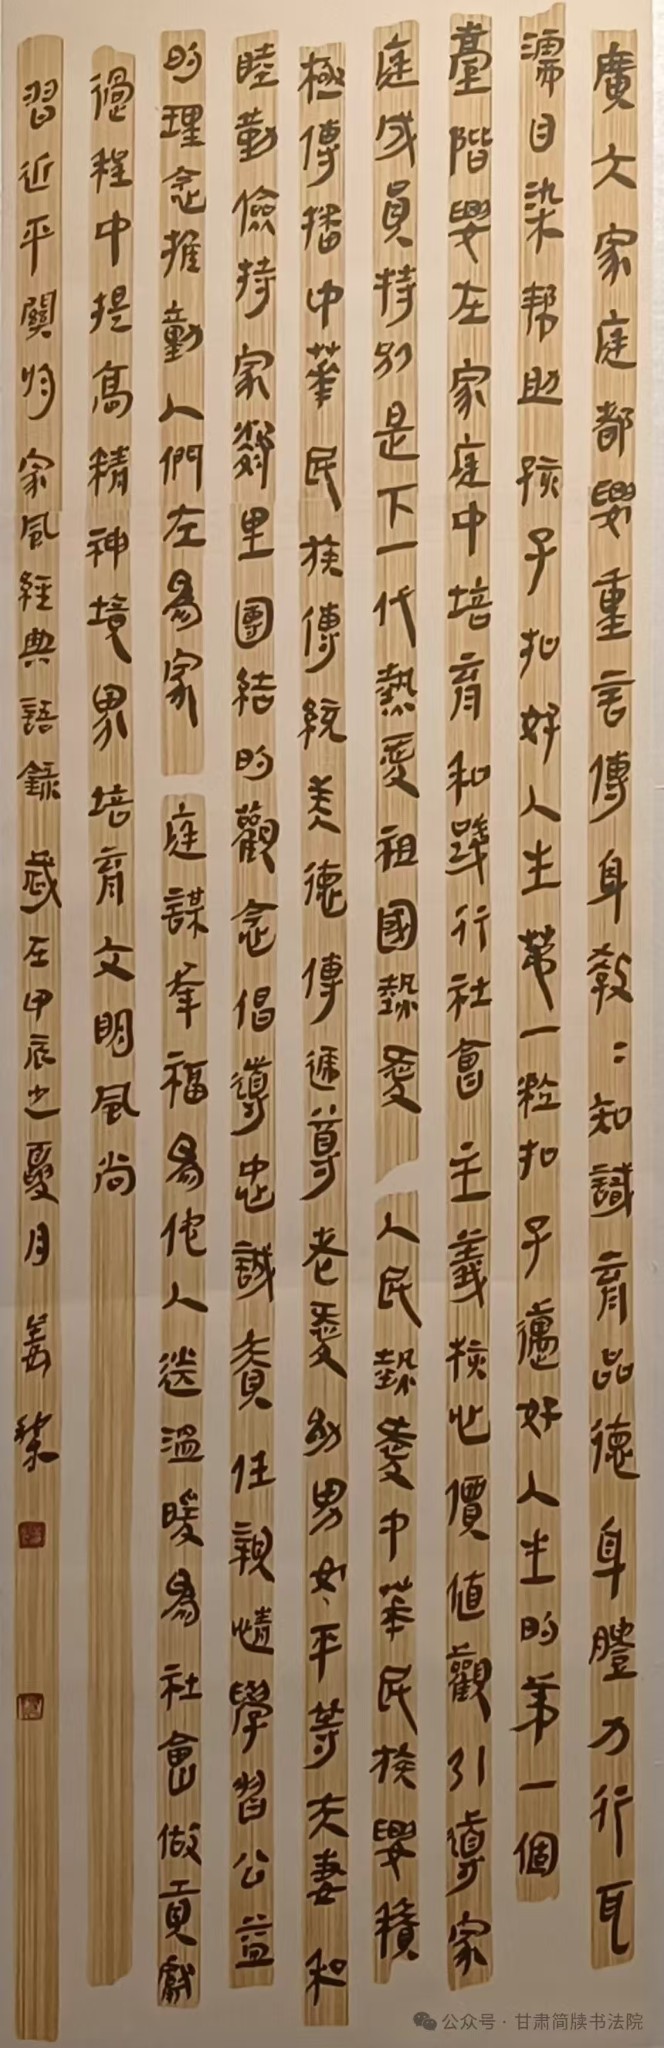 廣大家庭都要重言傳身教〻知識育品德身體力行耳
濡目染幫助孩子扣好人生第一粒扣子邁好人生的第一個
臺階要在家庭中培育和踐行社會主義核心價值觀引導家
庭成員特別是下一代熱愛祖國熱愛人民熱愛中華民族要積
極傳播中華民族傳統美德傳遞尊老愛幼男女平等夫妻和
睦勤儉持家鄰里團結的觀念倡導忠誠責任親情學習公益
的理念推動人們在為家庭謀幸福為他人送溫暖為社會做貢獻
過程中提高精神境界培育文明風尚
習近平關於家風經典語錄歲在甲辰之夏月
公众号·甘肃简牍书法院